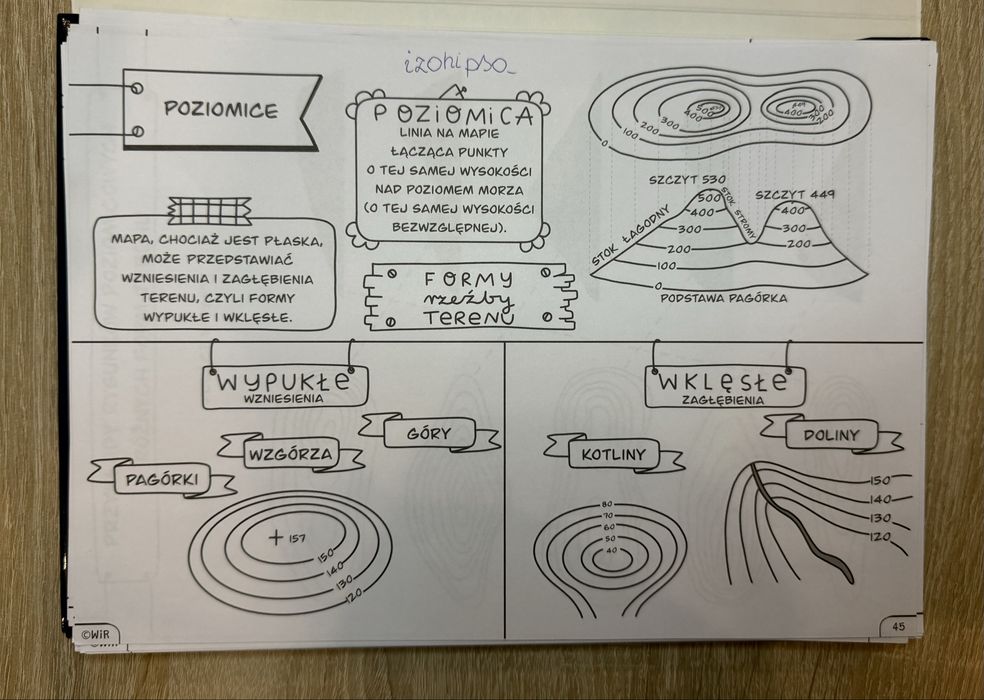 izohipsa
POZIOMICE
POZIOMICA
LINIA NA MAPIE
ŁĄCZĄCA PUNKTY
O TEJ SAMEJ WYSOKOŚCI
NAD POZIOMEM MORZA
(O TEJ SAMEJ WYSOKOŚCI
BEZWZGLĘDNEJ).
MAPA, CHOCIAŻ JEST PŁASKA,
MOŻE PRZEDSTAWIAĆ
WZNIESIENIA I ZAGŁĘBIENIA
TERENU, CZYLI FORMY
WYPUKŁE I WKLĘSŁE.
FORMY
rzeźby
TERENU
0
100
200
300
400
500
400
300
200
SZCZYT 530
SZCZYT 449
STOK ŁAGODNY
STOK STROMY
500
400
300
200
100
0
400
300
200
PODSTAWA PAGÓRKA
WYPUKŁE
WZNIESIENIA
PAGÓRKI
WZGÓRZA
GÓRY
+ 157
150
140
130
120
WKLĘSŁE
ZAGŁĘBIENIA
KOTLINY
DOLINY
80
70
60
50
40
150
140
130
120
©WiR
45